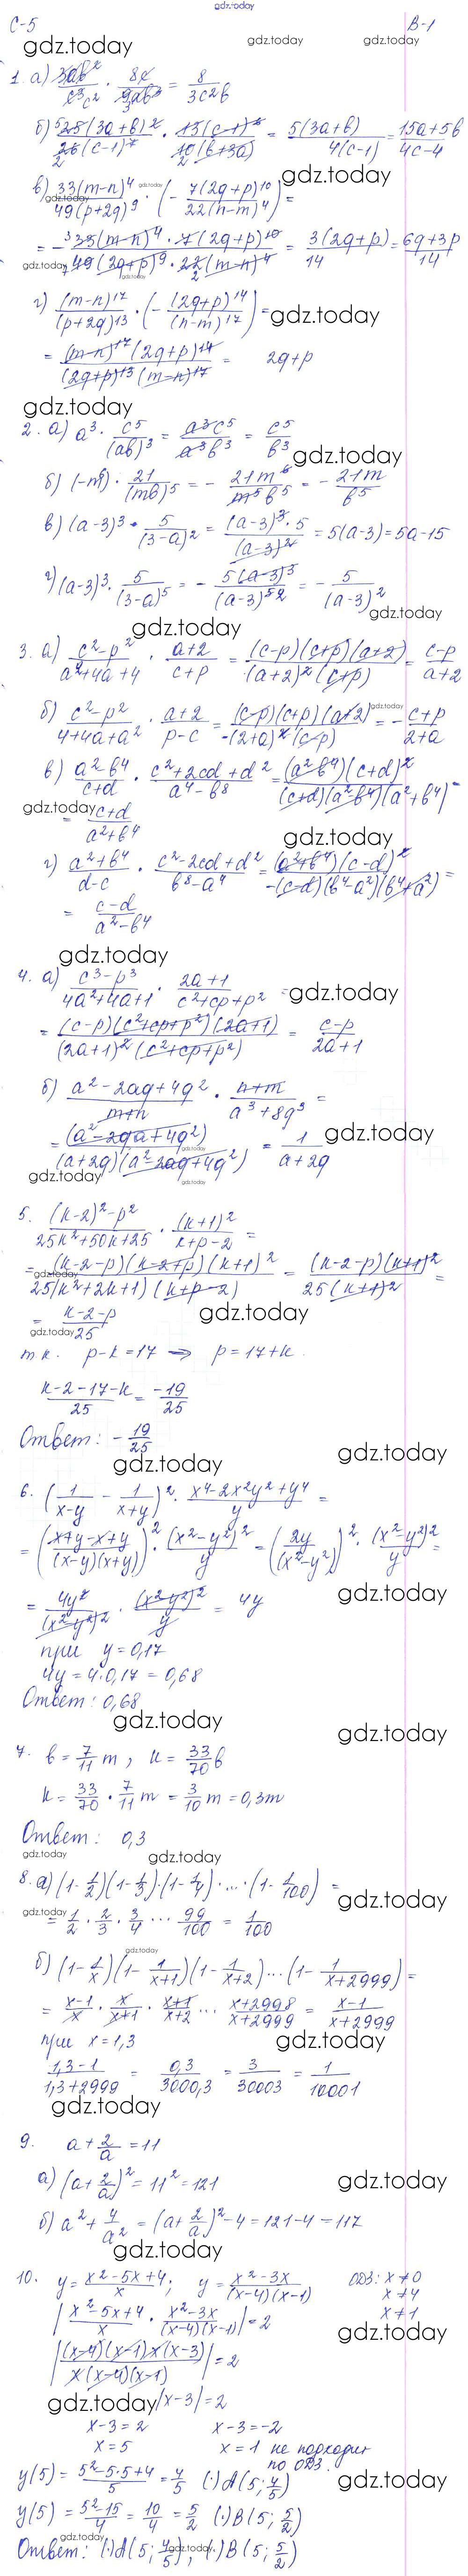 gdz.today
С-5 В-1
gdz.today gdz.today gdz.today
1. а) 3ab²/c³ · 8c/9ab³ = 8/3c²b
б) 25(3a+b)²/26(c-1)² · 13(c-1)/10(b+3a) = 5(3a+b)/4(c-1) = 15a+5b/4c-4
gdz.today
в) 33(m-n)⁴/49(p+2q)⁹ · (- 7(2q+p)¹⁰/22(n-m)⁴) =
= - 33(m-n)⁴ · 7(2q+p)¹⁰/49(2q+p)⁹ · 22(m-n)⁴ = 3(2q+p)/14 = 6q+3p/14
г) (m-n)¹⁷/(p+2q)¹³ · (- (2q+p)¹⁴/(n-m)¹⁷) =
gdz.today
= (m-n)¹⁷(2q+p)¹⁴/(2q+p)¹³(m-n)¹⁷ = 2q+p
gdz.today
2. а) a³ · c⁵/(ab)³ = a³c⁵/a³b³ = c⁵/b³
gdz.today
б) (-m⁶) · 21/(mb)⁵ = - 21m⁶/m⁵b⁵ = - 21m/b⁵
в) (a-3)³ · 5/(3-a)² = (a-3)³·5/(a-3)² = 5(a-3) = 5a-15
г) (a-3)³ · 5/(3-a)⁵ = - 5(a-3)³/(a-3)⁵ = - 5/(a-3)²
gdz.today
gdz.today
3. а) c²-p²/a²+4a+4 · a+2/c+p = (c-p)(c+p)(a+2)/(a+2)²(c+p) = c-p/a+2
б) c²-p²/4+4a+a² · a+2/p-c = (c-p)(c+p)(a+2)/-(2+a)²(c-p) = - c+p/2+a
в) a²-b⁴/c+d · c²+2cd+d²/a⁴-b⁸ = (a²-b⁴)(c+d)²/(c+d)(a²-b⁴)(a²+b⁴) =
gdz.today
= c+d/a²+b⁴
gdz.today
г) a²+b⁴/d-c · c²-2cd+d²/b⁸-a⁴ = (a²+b⁴)(c-d)²/-(c-d)(b⁴-a²)(b⁴+a²) =
= c-d/a²-b⁴
gdz.today
4. а) c³-p³/4a²+4a+1 · 2a+1/c²+cp+p² =
gdz.today
= (c-p)(c²+cp+p²)(2a+1)/(2a+1)²(c²+cp+p²) = c-p/2a+1
б) a²-2aq+4q²/m+n · n+m/a³+8q³ =
= (a²-2qa+4q²)/(a+2q)(a²-2aq+4q²) = 1/a+2q
gdz.today
gdz.today
5. (k-2)²-p²/25k²+50k+25 · (k+1)²/k+p-2 =
= (k-2-p)(k-2+p)(k+1)²/25(k²+2k+1)(k+p-2) = (k-2-p)(k+1)²/25(k+1)² =
gdz.today
= k-2-p/25
gdz.today
т.к. p-k=17 ⇒ p=17+k.
k-2-17-k/25 = -19/25
Ответ: - 19/25
gdz.today
gdz.today
6. (1/x-y - 1/x+y)² · x⁴-2x²y²+y⁴/y =
= (x+y-x+y/(x-y)(x+y))² · (x²-y²)²/y = (2y/(x²-y²))² · (x²-y²)²/y =
= 4y²/(x²-y²)² · (x²-y²)²/y = 4y
gdz.today
при y=0,17
4y=4·0,17=0,68
Ответ: 0,68
gdz.today
gdz.today
7. b= 7/11 m, k= 33/70 b
k= 33/70 · 7/11 m = 3/10 m = 0,3m
Ответ: 0,3
gdz.today gdz.today
8. а) (1-1/2)(1-1/3)·(1-1/4)·...·(1-1/100) =
gdz.today
= 1/2 · 2/3 · 3/4 ... 99/100 = 1/100
gdz.today
б) (1-1/x)(1-1/x+1)(1-1/x+2)...(1-1/x+2999) =
= x-1/x · x/x+1 · x+1/x+2 ... x+2998/x+2999 = x-1/x+2999
при x=1,3
gdz.today
1,3-1/1,3+2999 = 0,3/3000,3 = 3/30003 = 1/10001
gdz.today
9. a+2/a=11
а) (a+2/a)²=11²=121
gdz.today
б) a²+4/a² = (a+2/a)²-4=121-4=117
gdz.today
10. y= x²-5x+4/x; y= x²-3x/(x-4)(x-1) ОДЗ: x≠0
x≠4
x≠1
|x²-5x+4/x · x²-3x/(x-4)(x-1)|=2
gdz.today
|(x-4)(x-1)x(x-3)/x(x-4)(x-1)|=2
gdz.today |x-3|=2
x-3=2 x-3=-2
x=5 x=1 не подходит
по ОДЗ.
y(5)= 5²-5·5+4/5 = 4/5 (·)A(5; 4/5)
gdz.today
y(5)= 5²-15/4 = 10/4 = 5/2 (·)B(5; 5/2)
gdz.today
Ответ: (·)A(5; 4/5), (·)B(5; 5/2)
gdz.today